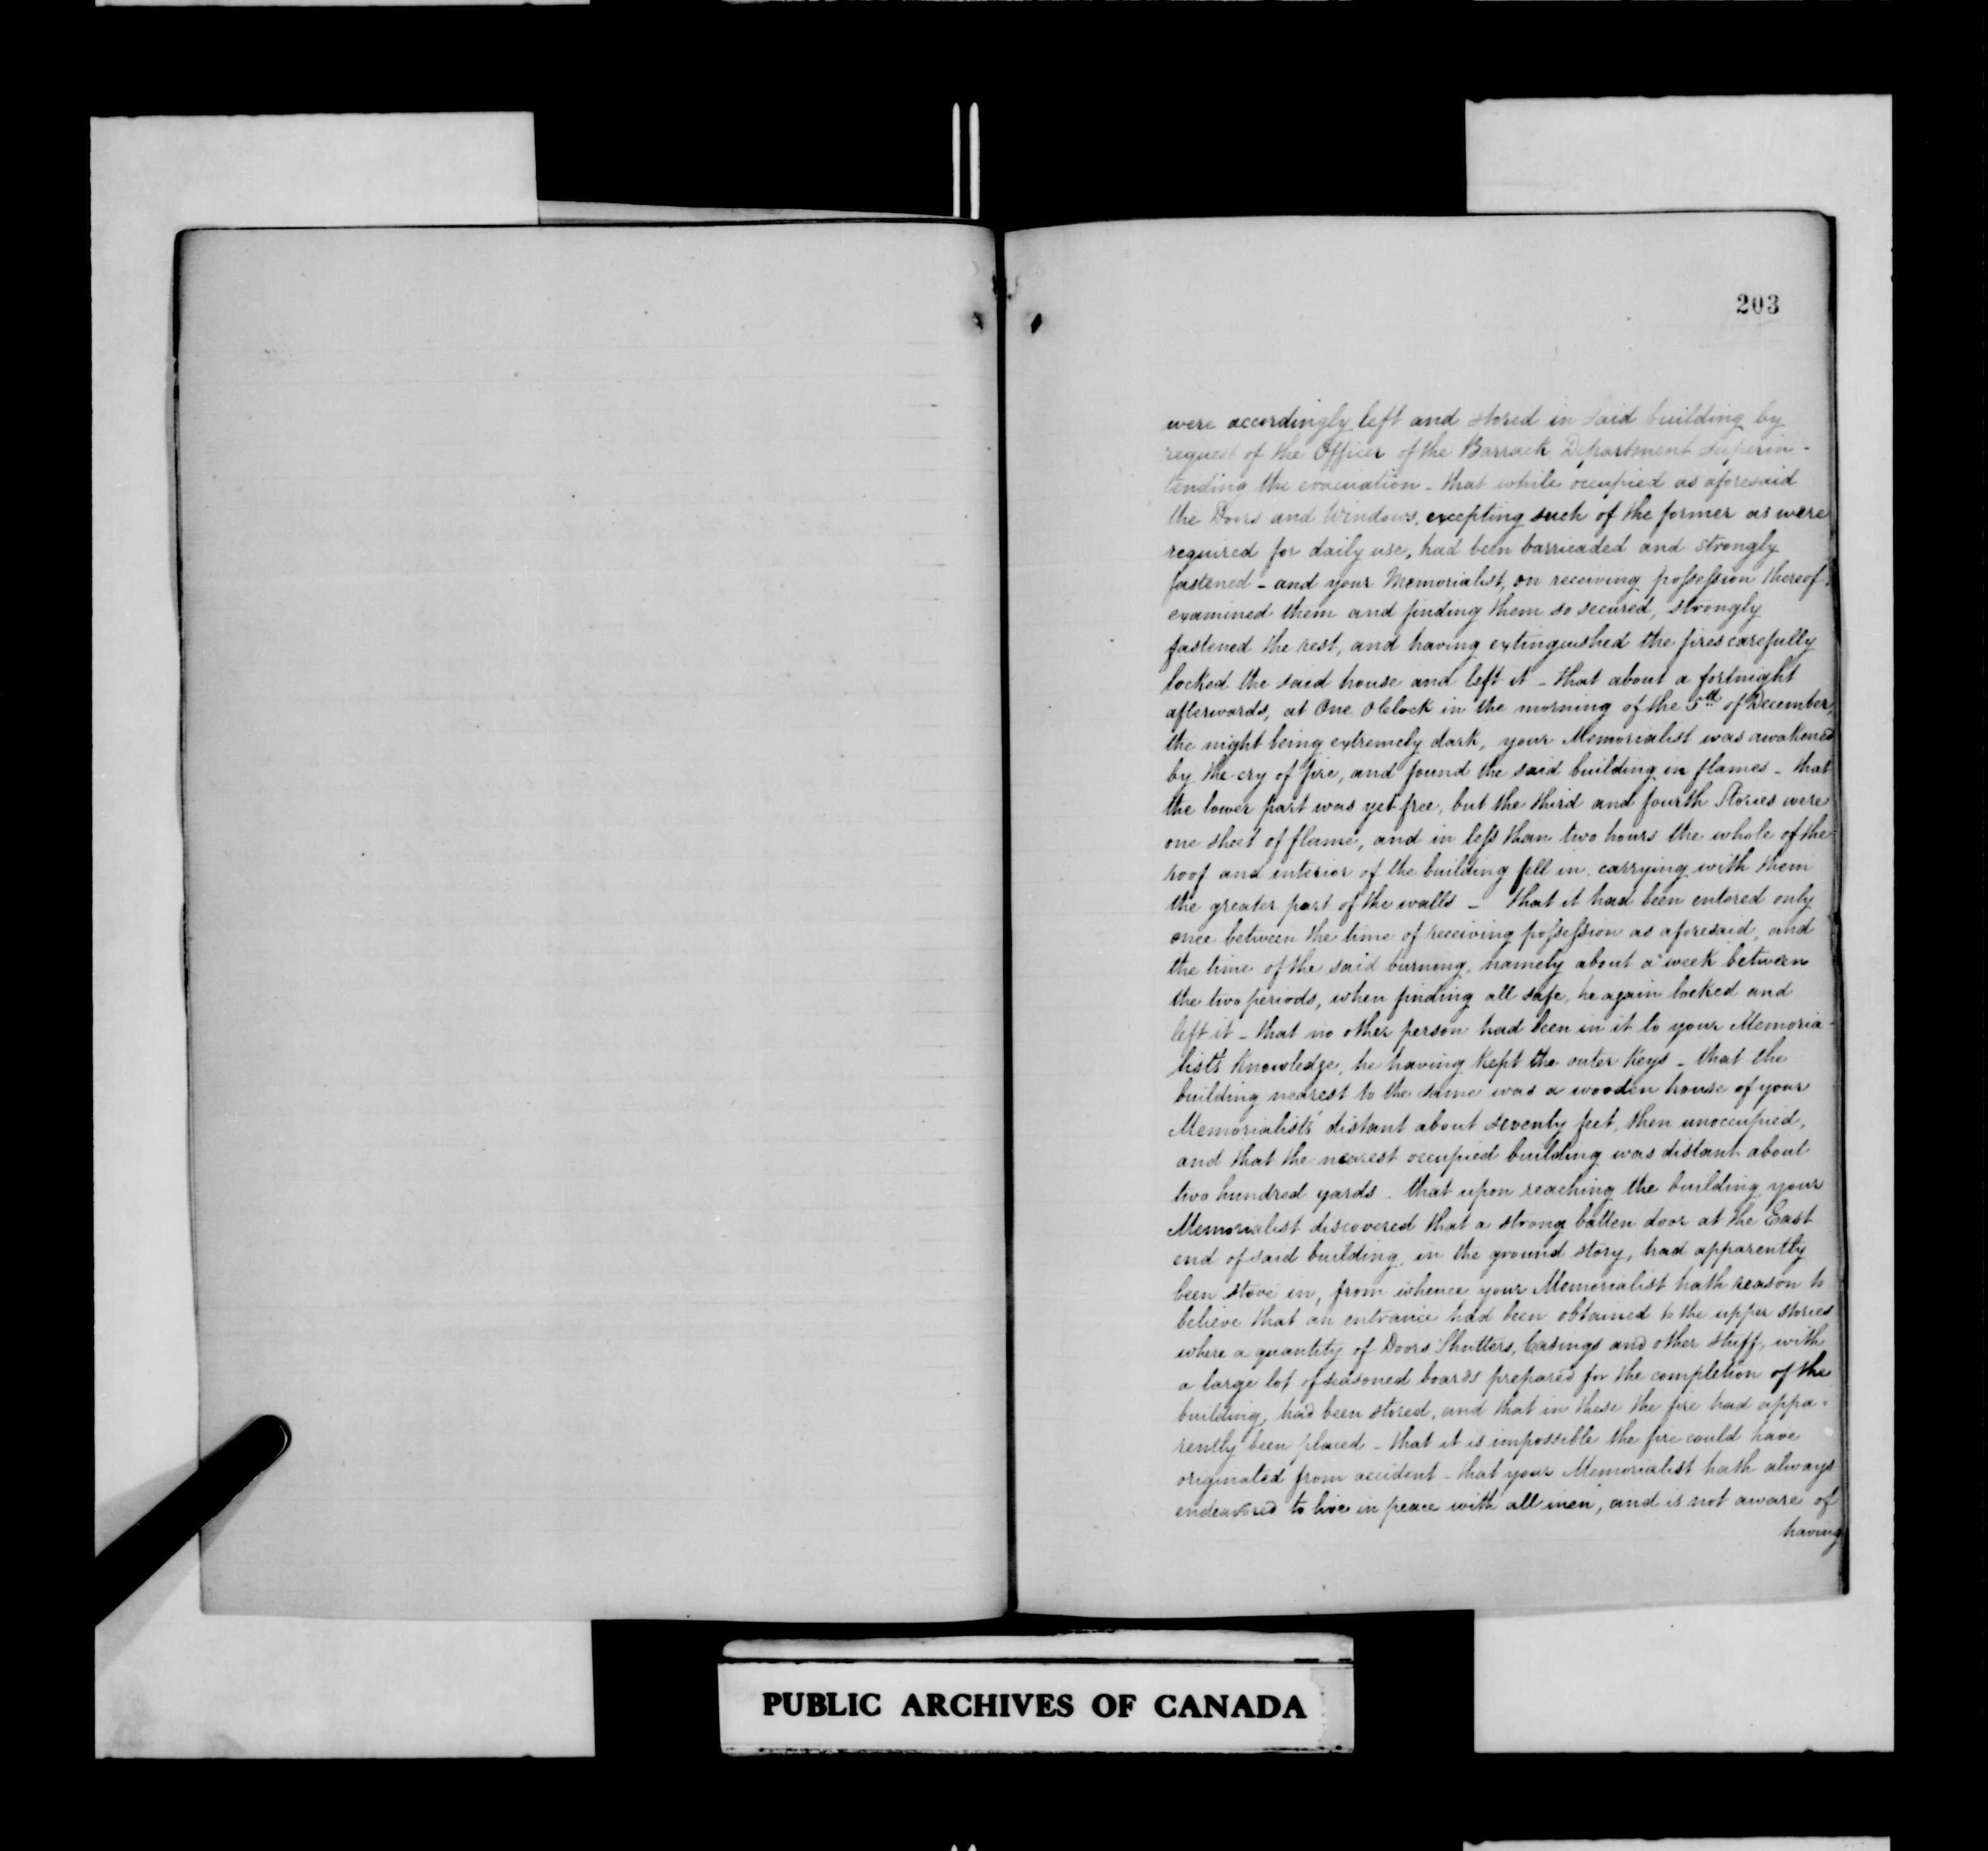 203
were accordingly left and stored in said building by
request of the Officer of the Barrack Department superin-
tending the evacuation - that while occupied as aforesaid
the Doors and Windows, excepting such of the former as were
required for daily use, had been barricaded and strongly
fastened - and your Memorialist, on receiving possession thereof,
examined them and finding them so secured, strongly
fastened the rest, and having extinguished the fires carefully
locked the said house and left it - that about a fortnight
afterwards, at One OClock in the morning of the 5th of December,
the night being extremely dark, your Memorialist was awakened
by the cry of fire, and found the said building in flames - that
the lower part was yet free, but the third and fourth Stories were
one sheet of flame, and in less than two hours the whole of the
roof and interior of the building fell in, carrying with them
the greater part of the walls - that it had been entered only
once between the time of receiving possession as aforesaid, and
the time of the said burning, namely about a week between
the two periods, when finding all safe, he again locked and
left it - that no other person had been in it to your Memoria-
list's knowledge, he having kept the outer keys - that the
building nearest to the same was a wooden house of your
Memorialists' distant about seventy feet, then unoccupied,
and that the nearest occupied building was distant about
two hundred yards - that upon reaching the building your
Memorialist discovered that a strong batten door at the East
end of said building, in the ground story, had apparently
been stove in, from whence your Memorialist hath reason to
believe that an entrance had been obtained to the upper stories
where a quantity of Doors Shutters, Casings and other stuff, with
a large lot of seasoned boards prepared for the completion of the
building, had been stored, and that in these the fire had appa-
rently been placed - that it is impossible the fire could have
originated from accident - that your Memorialist hath always
endeavored to live in peace with all men, and is not aware of
having
PUBLIC ARCHIVES OF CANADA